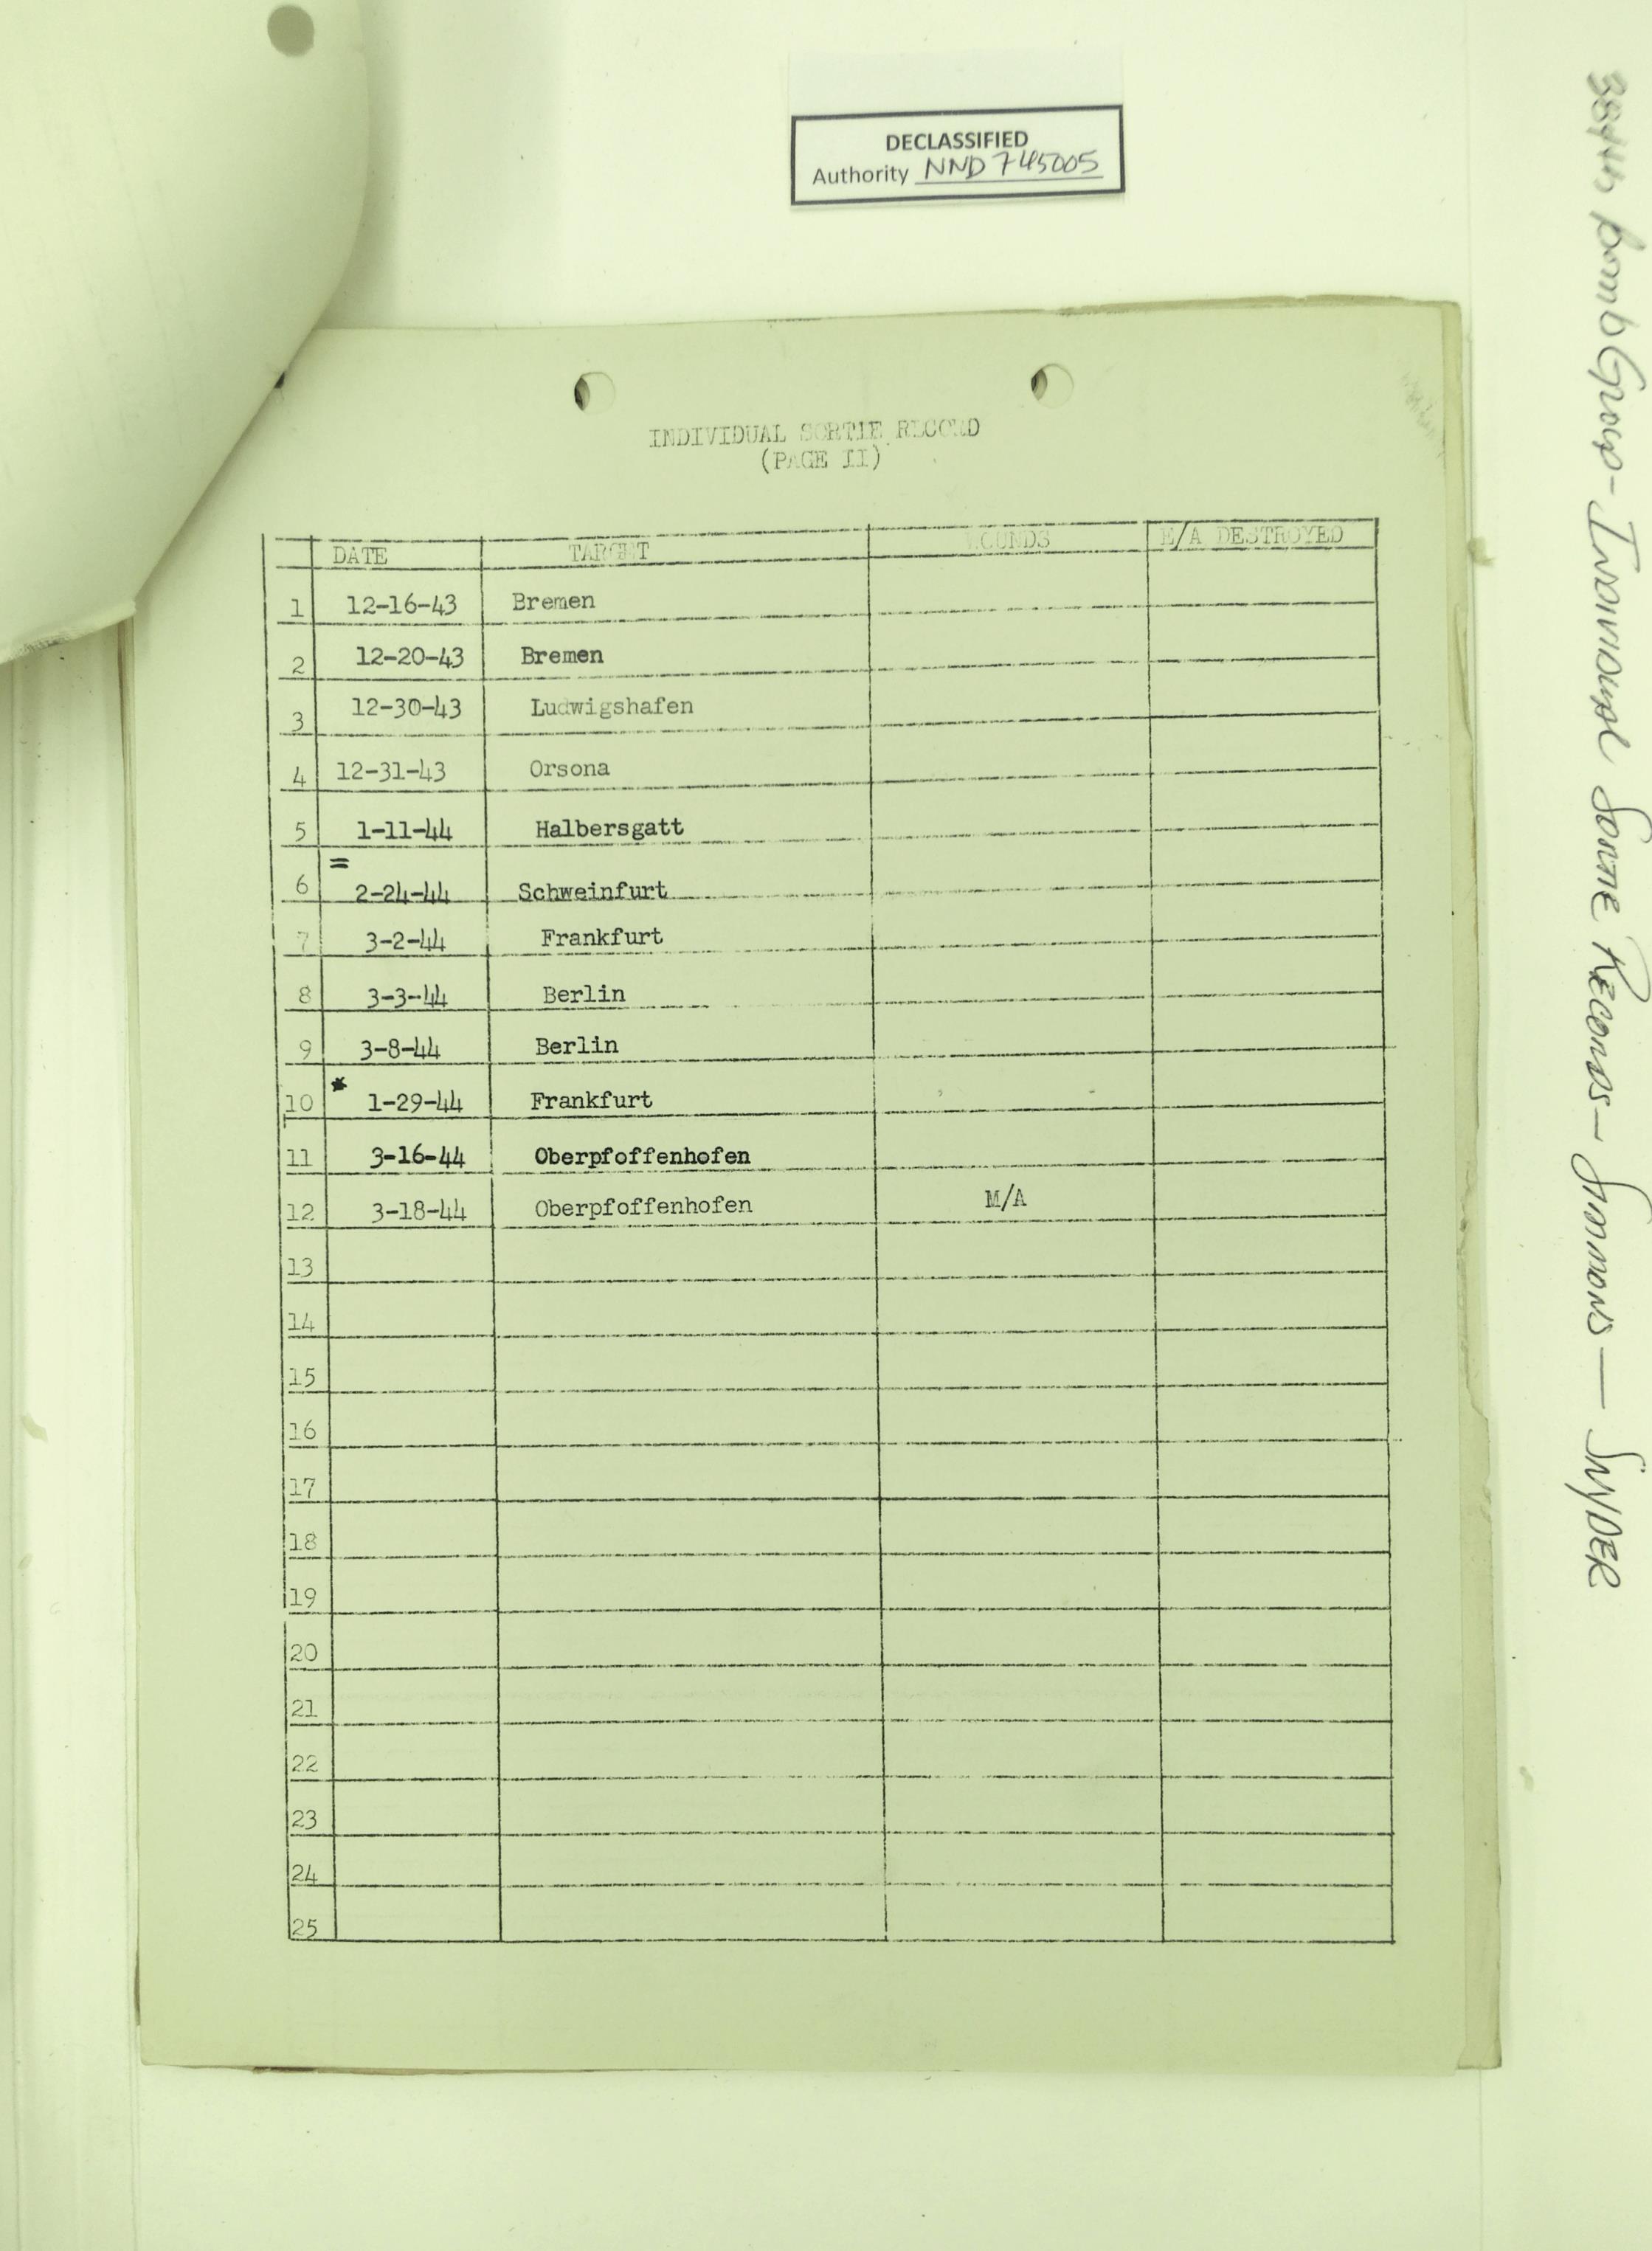 DECLASSIFIED
Authority NND 745005
INDIVIDUAL SORTIE RECORD
(PAGE II)
DATE TARGET WOUNDS E/A DESTROYED
1 12-16-43 Bremen
2 12-20-43 Bremen
3 12-30-43 Ludwigshafen
4 12-31-43 Orsona
5 1-11-44 Halbersgatt
=
6 2-24-44 Schweinfurt
7 3-2-44 Frankfurt
8 3-3-44 Berlin
9 3-8-44 Berlin
10 * 1-29-44 Frankfurt
11 3-16-44 Oberpfoffenhofen
12 3-18-44 Oberpfoffenhofen M/A
13
14
15
16
17
18
19
20
21
22
23
24
25
384th Bomb Group - Individual Sortie Records - Simmons - Snyder